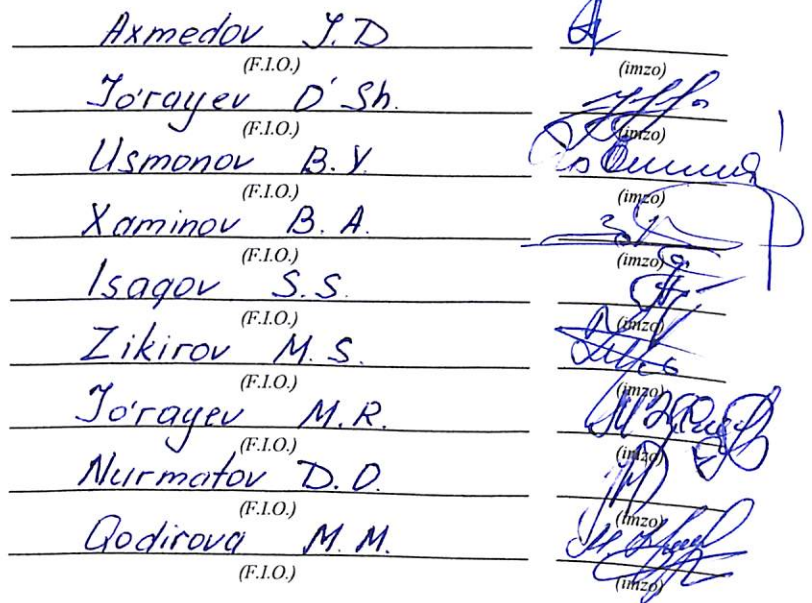 Axmedov J.D
(F.I.O.) (imzo)
Jo'rayev O' Sh.
(F.I.O.) (imzo)
Usmonov B.Y.
(F.I.O.) (imzo)
Xaminov B.A.
(F.I.O.) (imzo)
Isaqov S.S.
(F.I.O.) (imzo)
Zikirov M.S.
(F.I.O.) (imzo)
Jo'rayev M.R.
(F.I.O.) (imzo)
Nurmatov D.O.
(F.I.O.) (imzo)
Qodirova M.M.
(F.I.O.) (imzo)